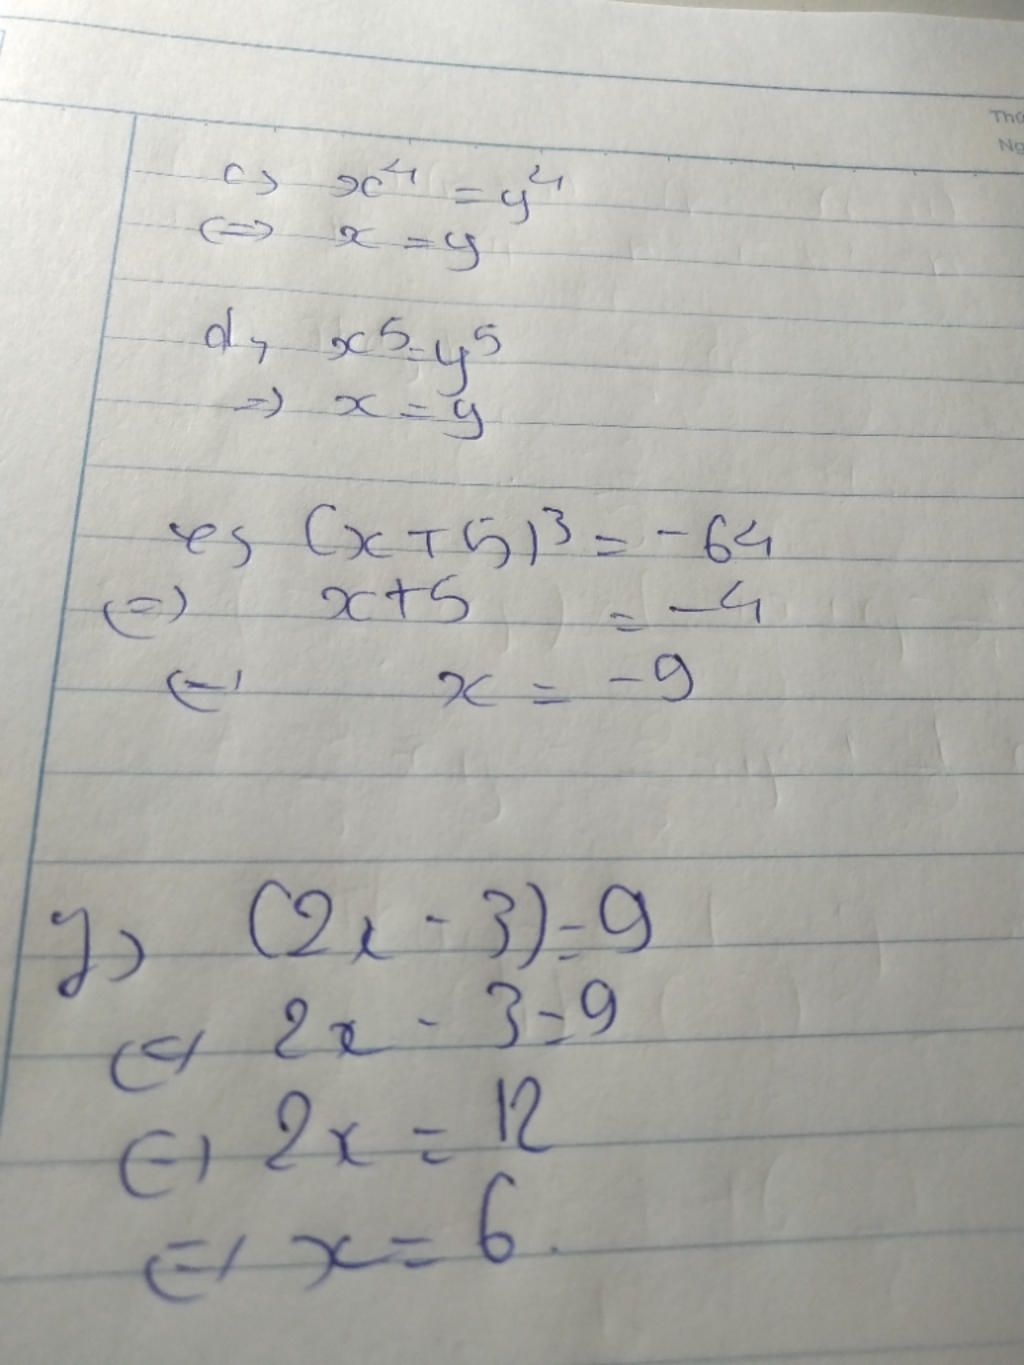 Thứ
Ng
c, x⁴ = y⁴
<=> x = y
d, x⁵ = y⁵
=> x = y
e, (x + 5)³ = -64
<=> x + 5 = -4
<=> x = -9
y, (2x - 3) = 9
<=> 2x - 3 = 9
<=> 2x = 12
<=> x = 6.